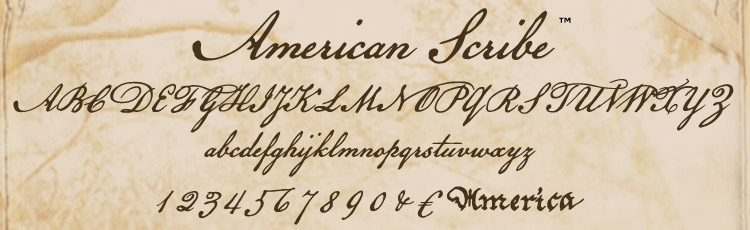 American Scribe™
ABCDEFGHIJKLMNOPQRSTUVWXYZ
abcdefghijklmnopqrstuvwxyz
1 2 3 4 5 6 7 8 9 0 & € America